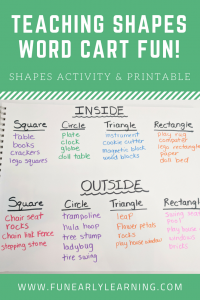 TEACHING SHAPES
WORD CART FUN!
SHAPES ACTIVITY & PRINTABLE
INSIDE
Square
table
books
crackers
lego squares
Circle
plate
clock
globe
doll table
Triangle
instrument
cookie cutter
magnetic block
wood blocks
Rectangle
play rug
computer
lego rectangle
paper
doll bed
OUTSIDE
Square
Chair seat
rocks
chain link fence
stepping stone
Circle
trampoline
hula hoop
tree stump
ladybug
tire swing
Triangle
leaf
flower petals
rocks
play house window
Rectangle
Swing
play house
windows
bricks
WWW.FUNEARLYLEARNING.COM